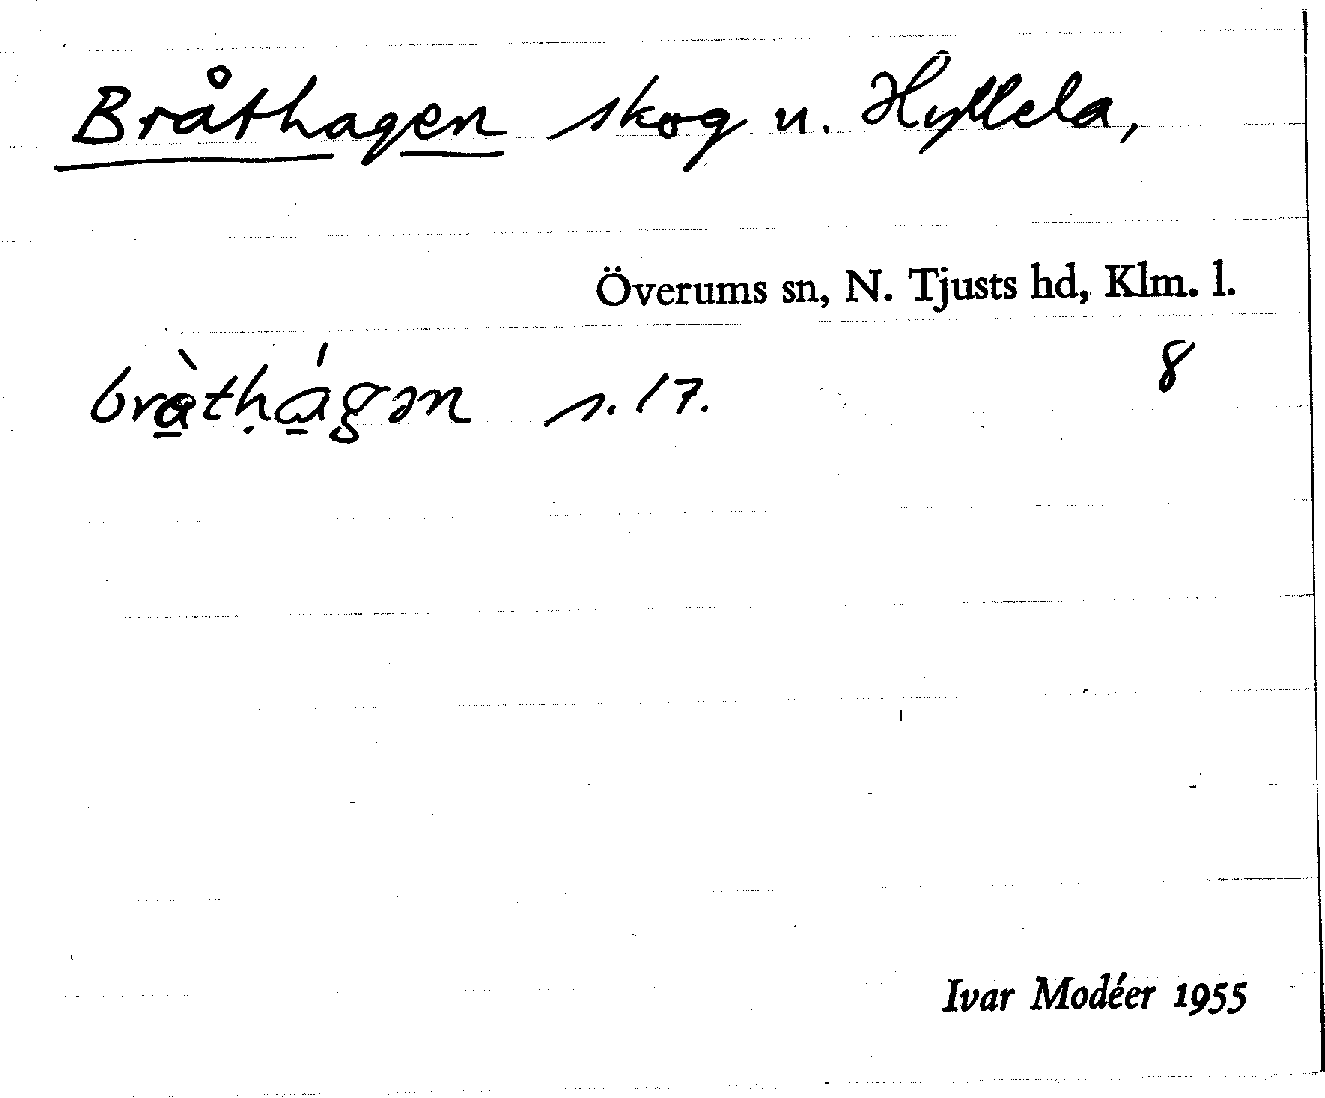 Bråthagen skog u. Hyllela,
Överums sn, N. Tjusts hd, Klm. l.
s. 17. 8
Ivar Modéer 1955